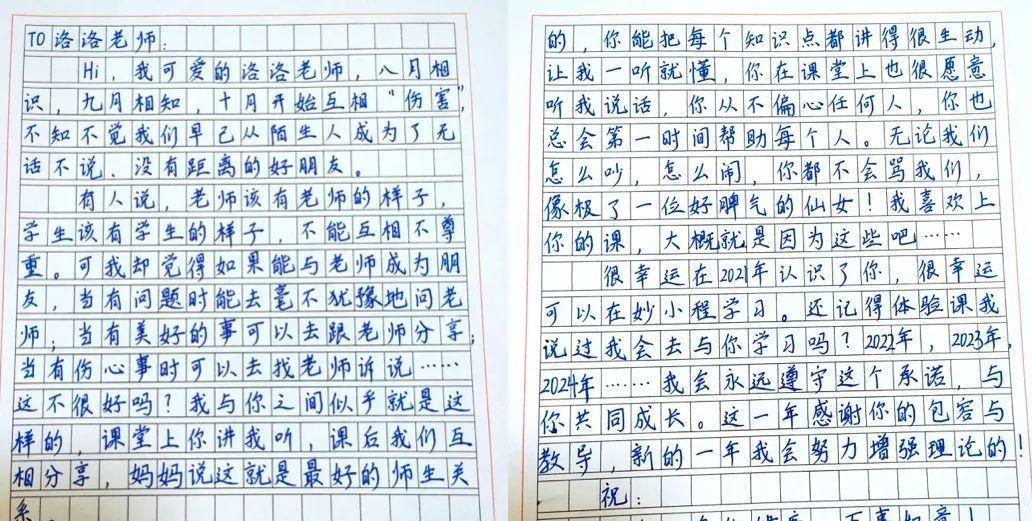 TO洛洛老师：
Hi，我可爱的洛洛老师，八月相
识，九月相知，十月开始互相“伤害”，
不知不觉我们早已从陌生人成为了无
话不说、没有距离的好朋友。
有人说，老师该有老师的样子，
学生该有学生的样子，不能互相不尊
重。可我却觉得如果能与老师成为朋
友，当有问题时能去毫不犹豫地问老
师；当有美好的事可以去跟老师分享；
当有伤心事时可以去找老师诉说……
这不很好吗？我与你之间似乎就是这
样的，课堂上你讲我听，课后我们互
相分享，妈妈说这就是最好的师生关
系。
的，你能把每个知识点都讲得很生动，
让我一听就懂，你在课堂上也很愿意
听我说话，你从不偏心任何人，你也
总会第一时间帮助每个人。无论我们
怎么吵，怎么闹，你都不会骂我们，
像极了一位好脾气的仙女！我喜欢上
你的课，大概就是因为这些吧……
很幸运在2021年认识了你，很幸运
可以在妙小程学习。还记得体验课我
说过我会去与你学习吗？2022年，2023年，
2024年……我会永远遵守这个承诺，与
你共同成长。这一年感谢你的包容与
教导，新的一年我会努力增强理论的！
祝：
万事如意！